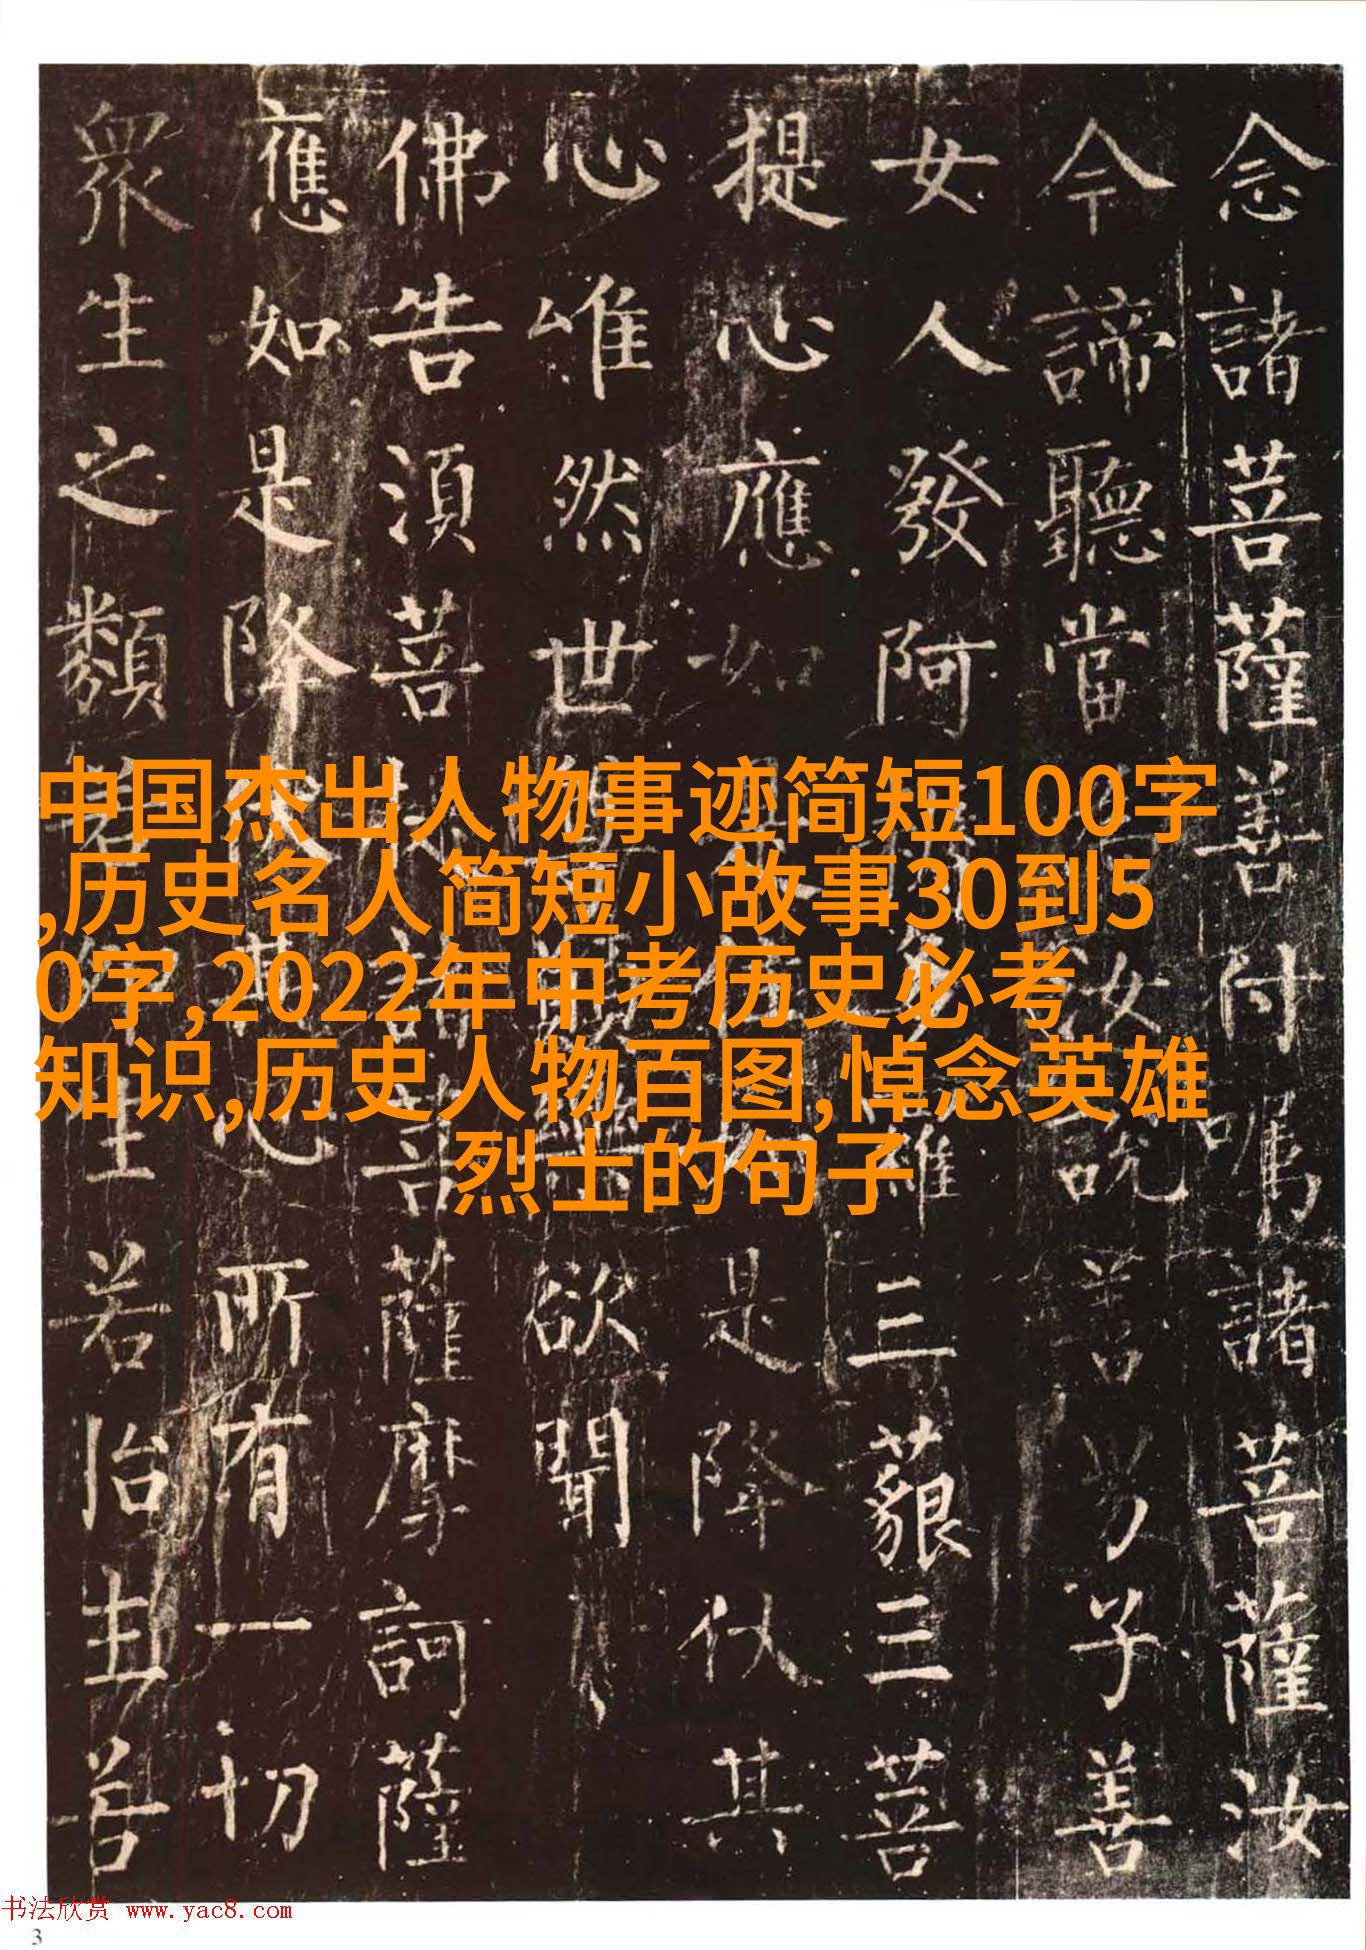 念諸菩薩善付囑諸菩薩汝
今諦聽當汝說善男子善
女人發阿羅三藐三菩
提心應如是降伏其
心唯然世欲聞
佛告須菩諸菩薩摩訶薩
應如是降伏其心所有一切
眾生之類生若胎生若
中国杰出人物事迹简短100字
,历史名人简短小故事30到5
0字,2022年中考历史必考
知识,历史人物百图,悼念英雄
烈士的句子
书法欣赏 www.yac8.com
3